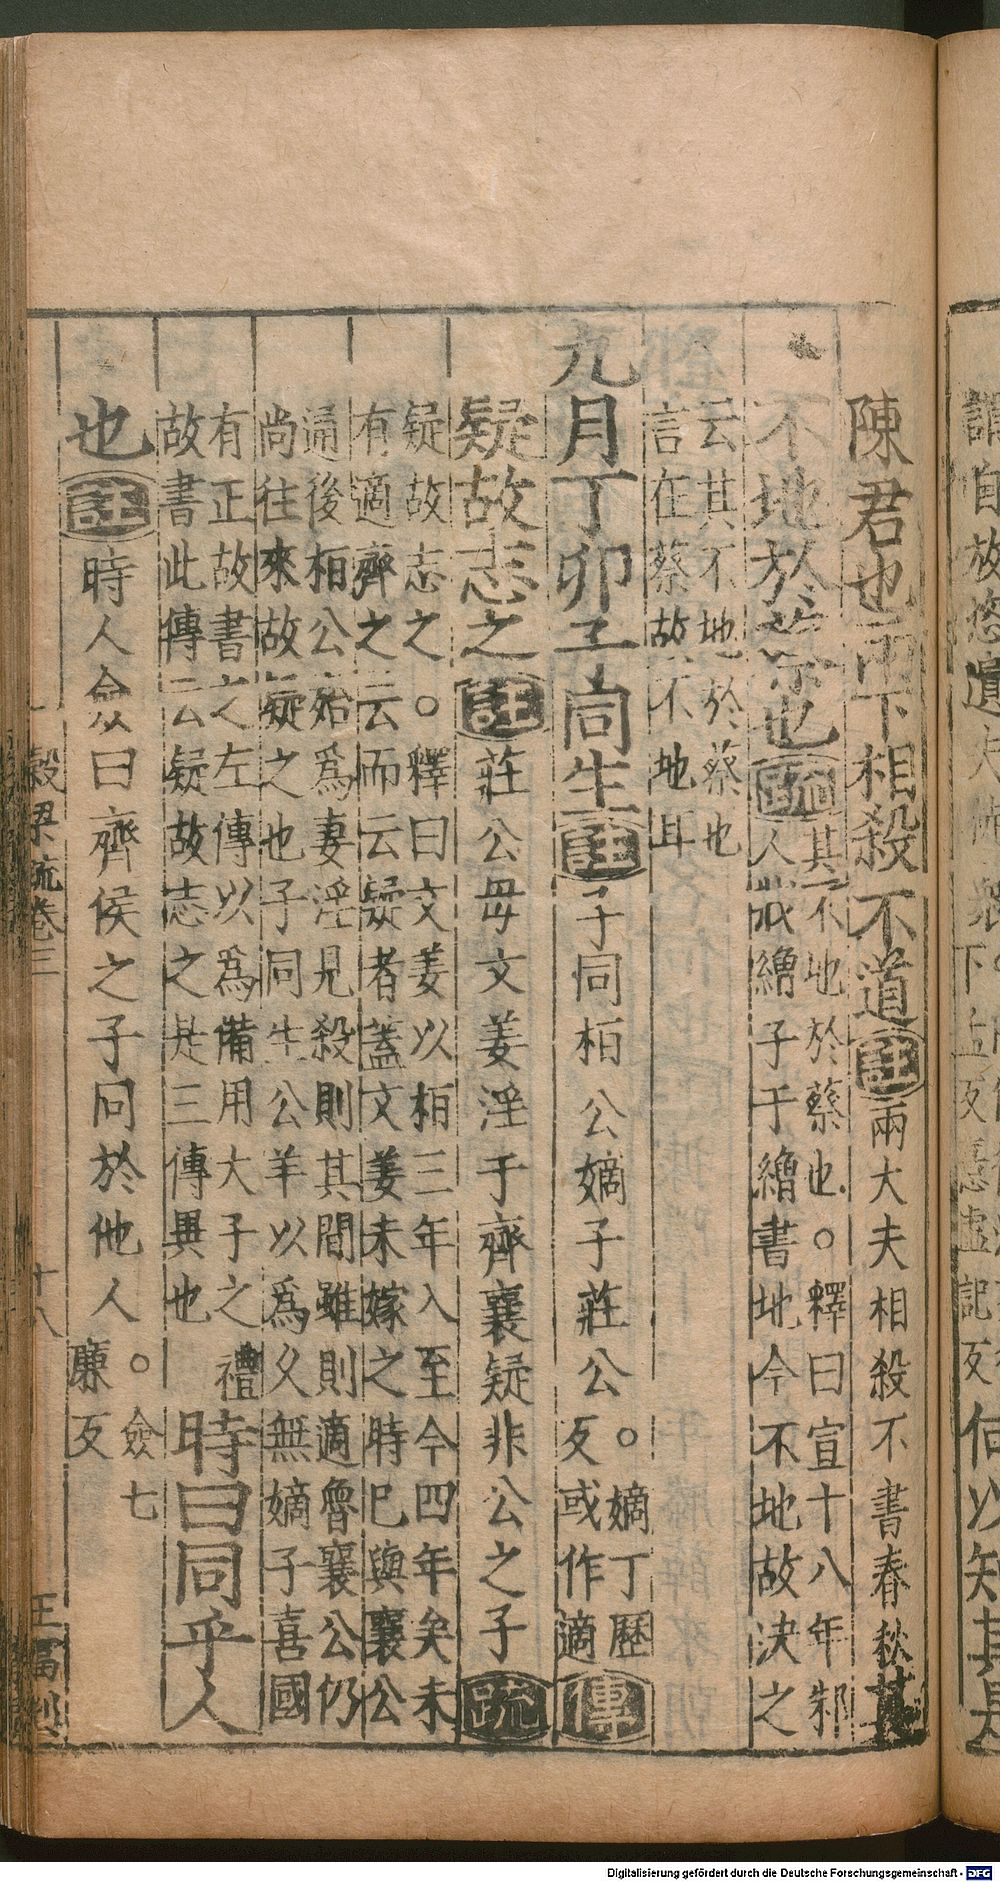 陳君也兩下相殺不道註兩大夫相殺不書春秋其
不地於蔡也疏其不地於蔡也。釋曰宣十八年邾
人戕繒子于繒書地今不地故决之
云其不地於蔡也
言在蔡故不地耳
九月丁卯子同生註子同栢公嫡子莊公。嫡丁歷
反或作適傳
疑故志之註莊公母文姜淫于齊襄疑非公之子疏
疑故志之。釋曰文姜以栢三年入至今四年矣未
有適齊之云而云疑者蓋文姜未嫁之時巳與襄公
通後栢公始爲妻淫見殺則其間雖則適魯襄公仍
尚往來故疑之也子同生公羊以爲久無嫡子喜國
有正故書之左傳以爲備用大子之禮
故書此傳云疑故志之是三傳異也
時曰同乎人
也註時人僉曰齊侯之子同於他人。僉七
廉反
穀梁疏卷三
十八
Digitalisierung gefördert durch die Deutsche Forschungsgemeinschaft - DFG